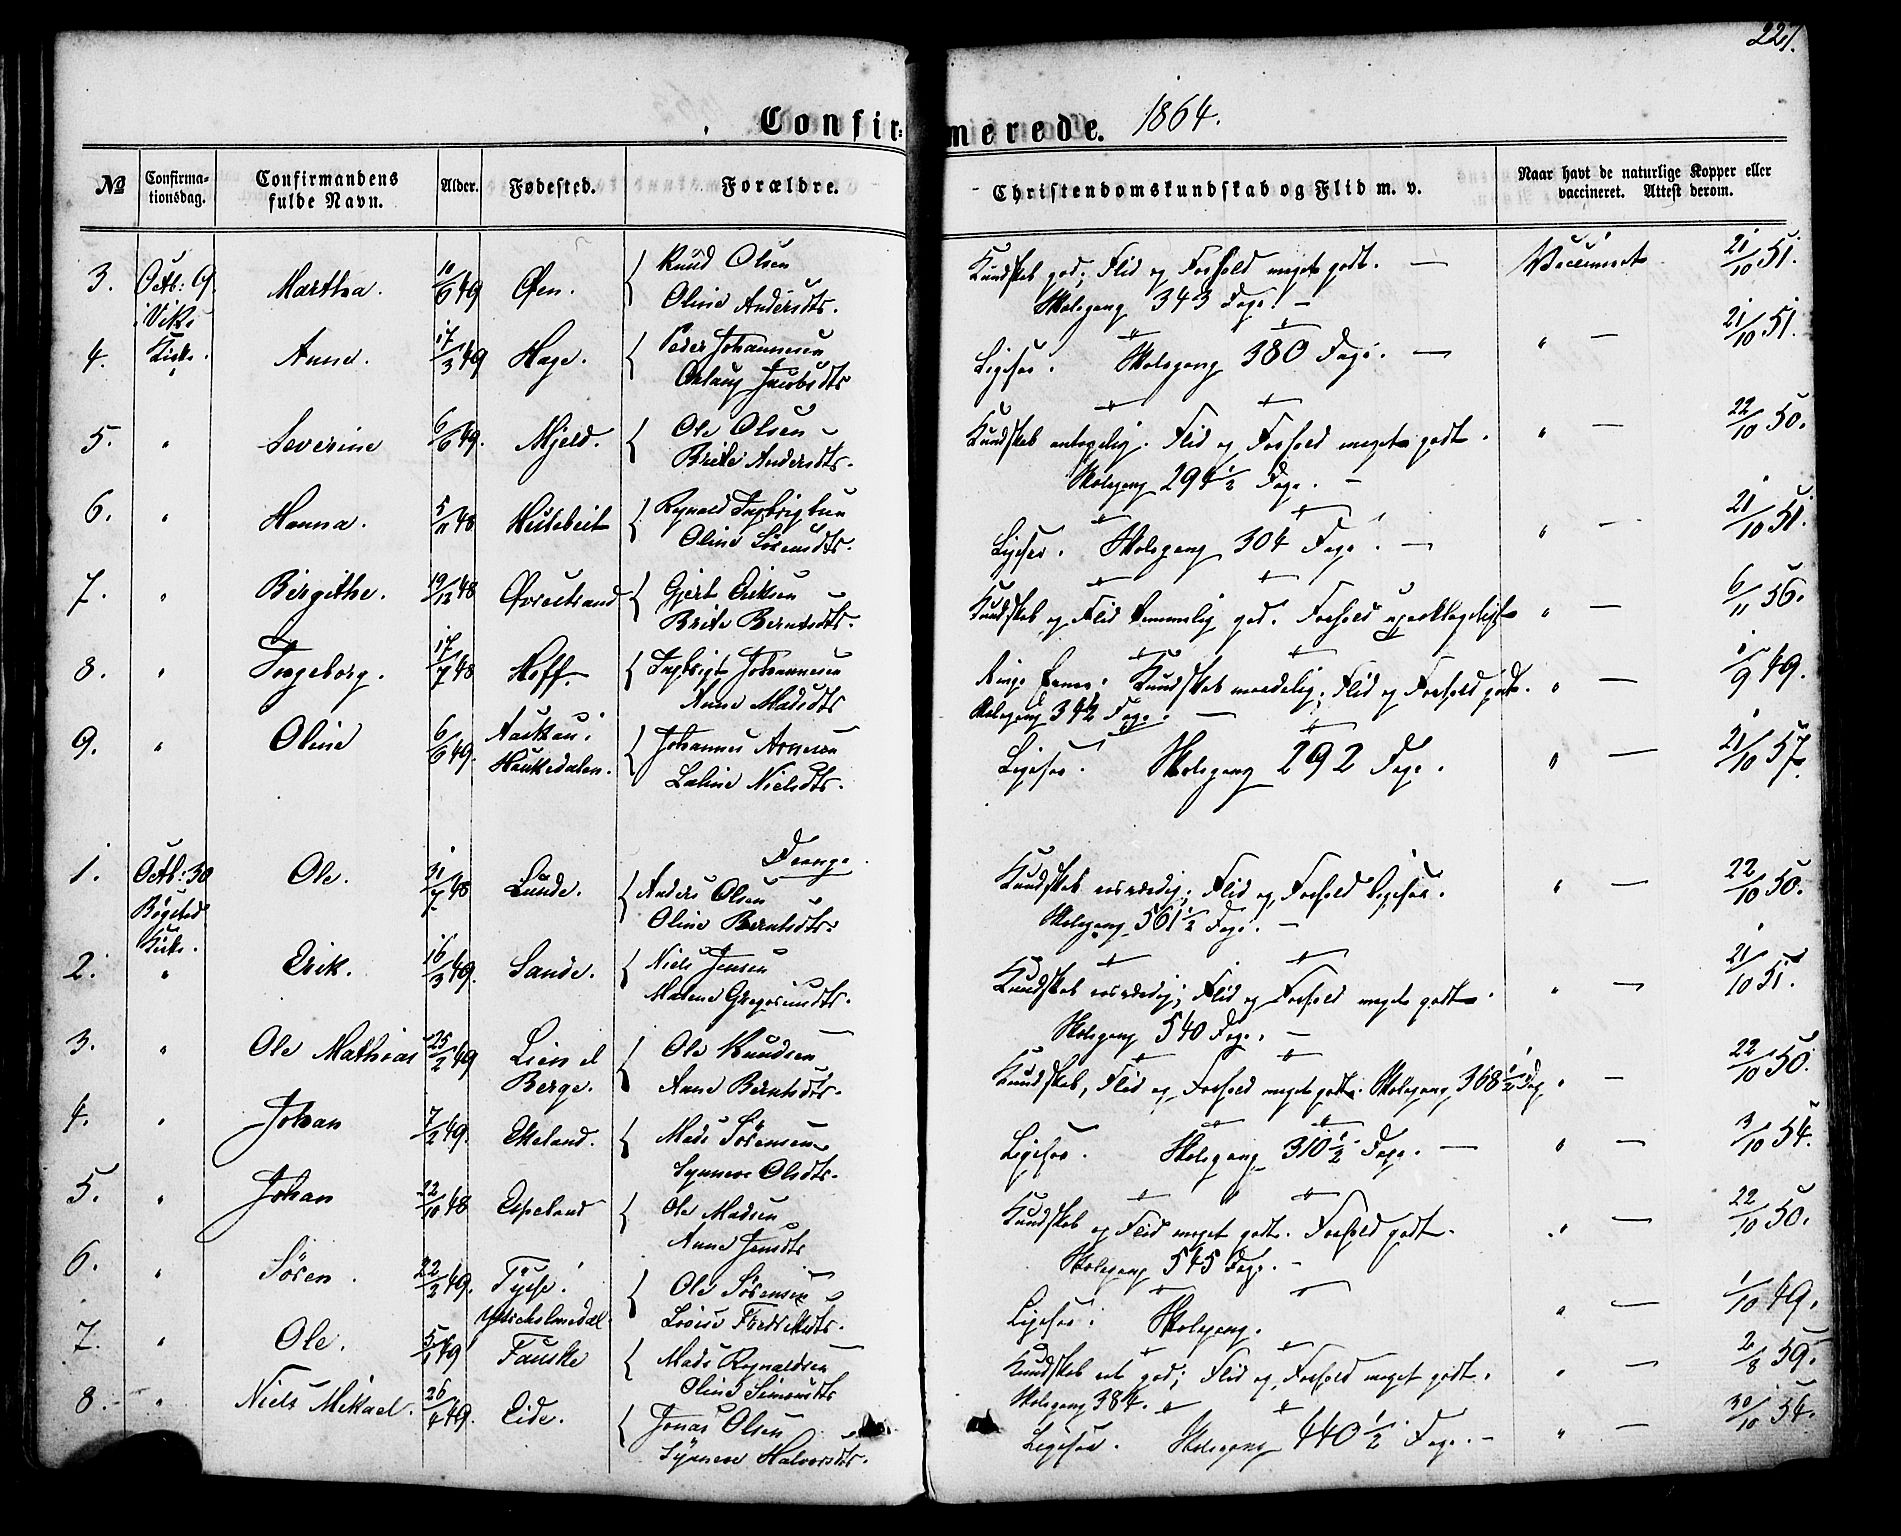 227.
Confirmerede. 1864.
№ Confirmationsdag. Confirmandens fulde Navn. Alder. Fødested. Forældre. Christendomskundskab og Flid m. v. Naar havt de naturlige Kopper eller vaccineret. Attest derom.
3. Octb: 9 Martha. 10/9 49 Øen. Knud Olsen Kundskab god; Flid og Forhold meget godt. — Vaccineret 21/10 51.
i Viks Oline Andersdtr. Skolegang 343 Dage. —
4. Kirke. Anna. 17/3 49 Hage. Peder Johannesen Ligesaa. Skolegang 380 Dage. — " — 21/10 51.
Jacobsdtr
5. " Severine 6/6 49. Mjeld. Ole Olsen Kundskab antagelig. Flid og Forhold meget godt. " — 22/10 50.
Brite Andersdtr. Skolegang 294 1/2 Dage. —
6. " Hanna. 5/11 48 Hestebeit Rognald Ingbrigtsen Ligesaa. Skolegang 304 Dage. — " — 21/10 51.
Oline Sørensdtr.
7. " Birgithe. 19/12 48 Øvrestrand Gjert Eriksen Kundskab og Flid temmelig god. Forhold upaaklageligt " — 6/11 56.
Brite Berntsdtr.
8. " Ingeborg. 17/7 48 Hoff. Ingbrigt Johannesen Ringe Evner. Kundskab maadelig; Flid og Forhold godt. " — 1/9 49.
Anne Madsdtr Skolegang 342 Dage. —
9. " Oline 6/6 49. Aaskau i Johannes Arnesen Ligesaa. Skolegang 292 Dage. " — 21/10 57.
Haukedalen. Laline Nielsdtr.
Drenge.
1. Octb: 30 Ole. 31/7 48 Lunde. Anders Olsen Kundskab rosværdig; Flid og Forhold ligesaa. " — 22/10 50.
Bygstad Oline Berntsdtr. Skolegang 561 1/2 Dage. —
Kirke.
2. " Erik. 16/3 49. Sande. Niels Jensen Kundskab rosværdig; Flid og Forhold meget godt. " — 21/10 51.
Malene Gregoriusdtr. Skolegang 540 Dage. —
3. " Ole Mathias 25/2 49 Lien d Ole Knudsen Kundskab, Flid og Forhold meget godt. Skolegang 368 1/2 Dag " — 22/10 50.
Berge. Anne Berntsdtr.
4. " Johan 7/2 49. Ekeland. Mads Sørensen Ligesaa. Skolegang 310 1/2 Dage. — " — 3/10 54.
Synneve Olsdtr.
5. " Johan 22/10 48 Espeland Ole Madsen Kundskab og Flid meget godt. Forhold godt. " — 22/10 50.
Anne Jensdtr Skolegang 545 Dage. —
6. " Søren. 22/2 49. Tysse. Ole Sørensen Ligesaa. Skolegang. " — 1/10 49.
Ytreholmedal. Lovise Fredriksdtr.
7. " Ole. 5/1 49 Fauske Mads Rognaldsen Kundskab ret god; Flid og Forhold meget godt. " — 2/8 59.
Oline Simonsdtr Skolegang 384.
8. " Niels Mikael. 26/4 49. Eide. Jonas Olsen Ligesaa. Skolegang 440 1/2 Dage. — " — 30/10 54.
Synneve Halvorsdtr.